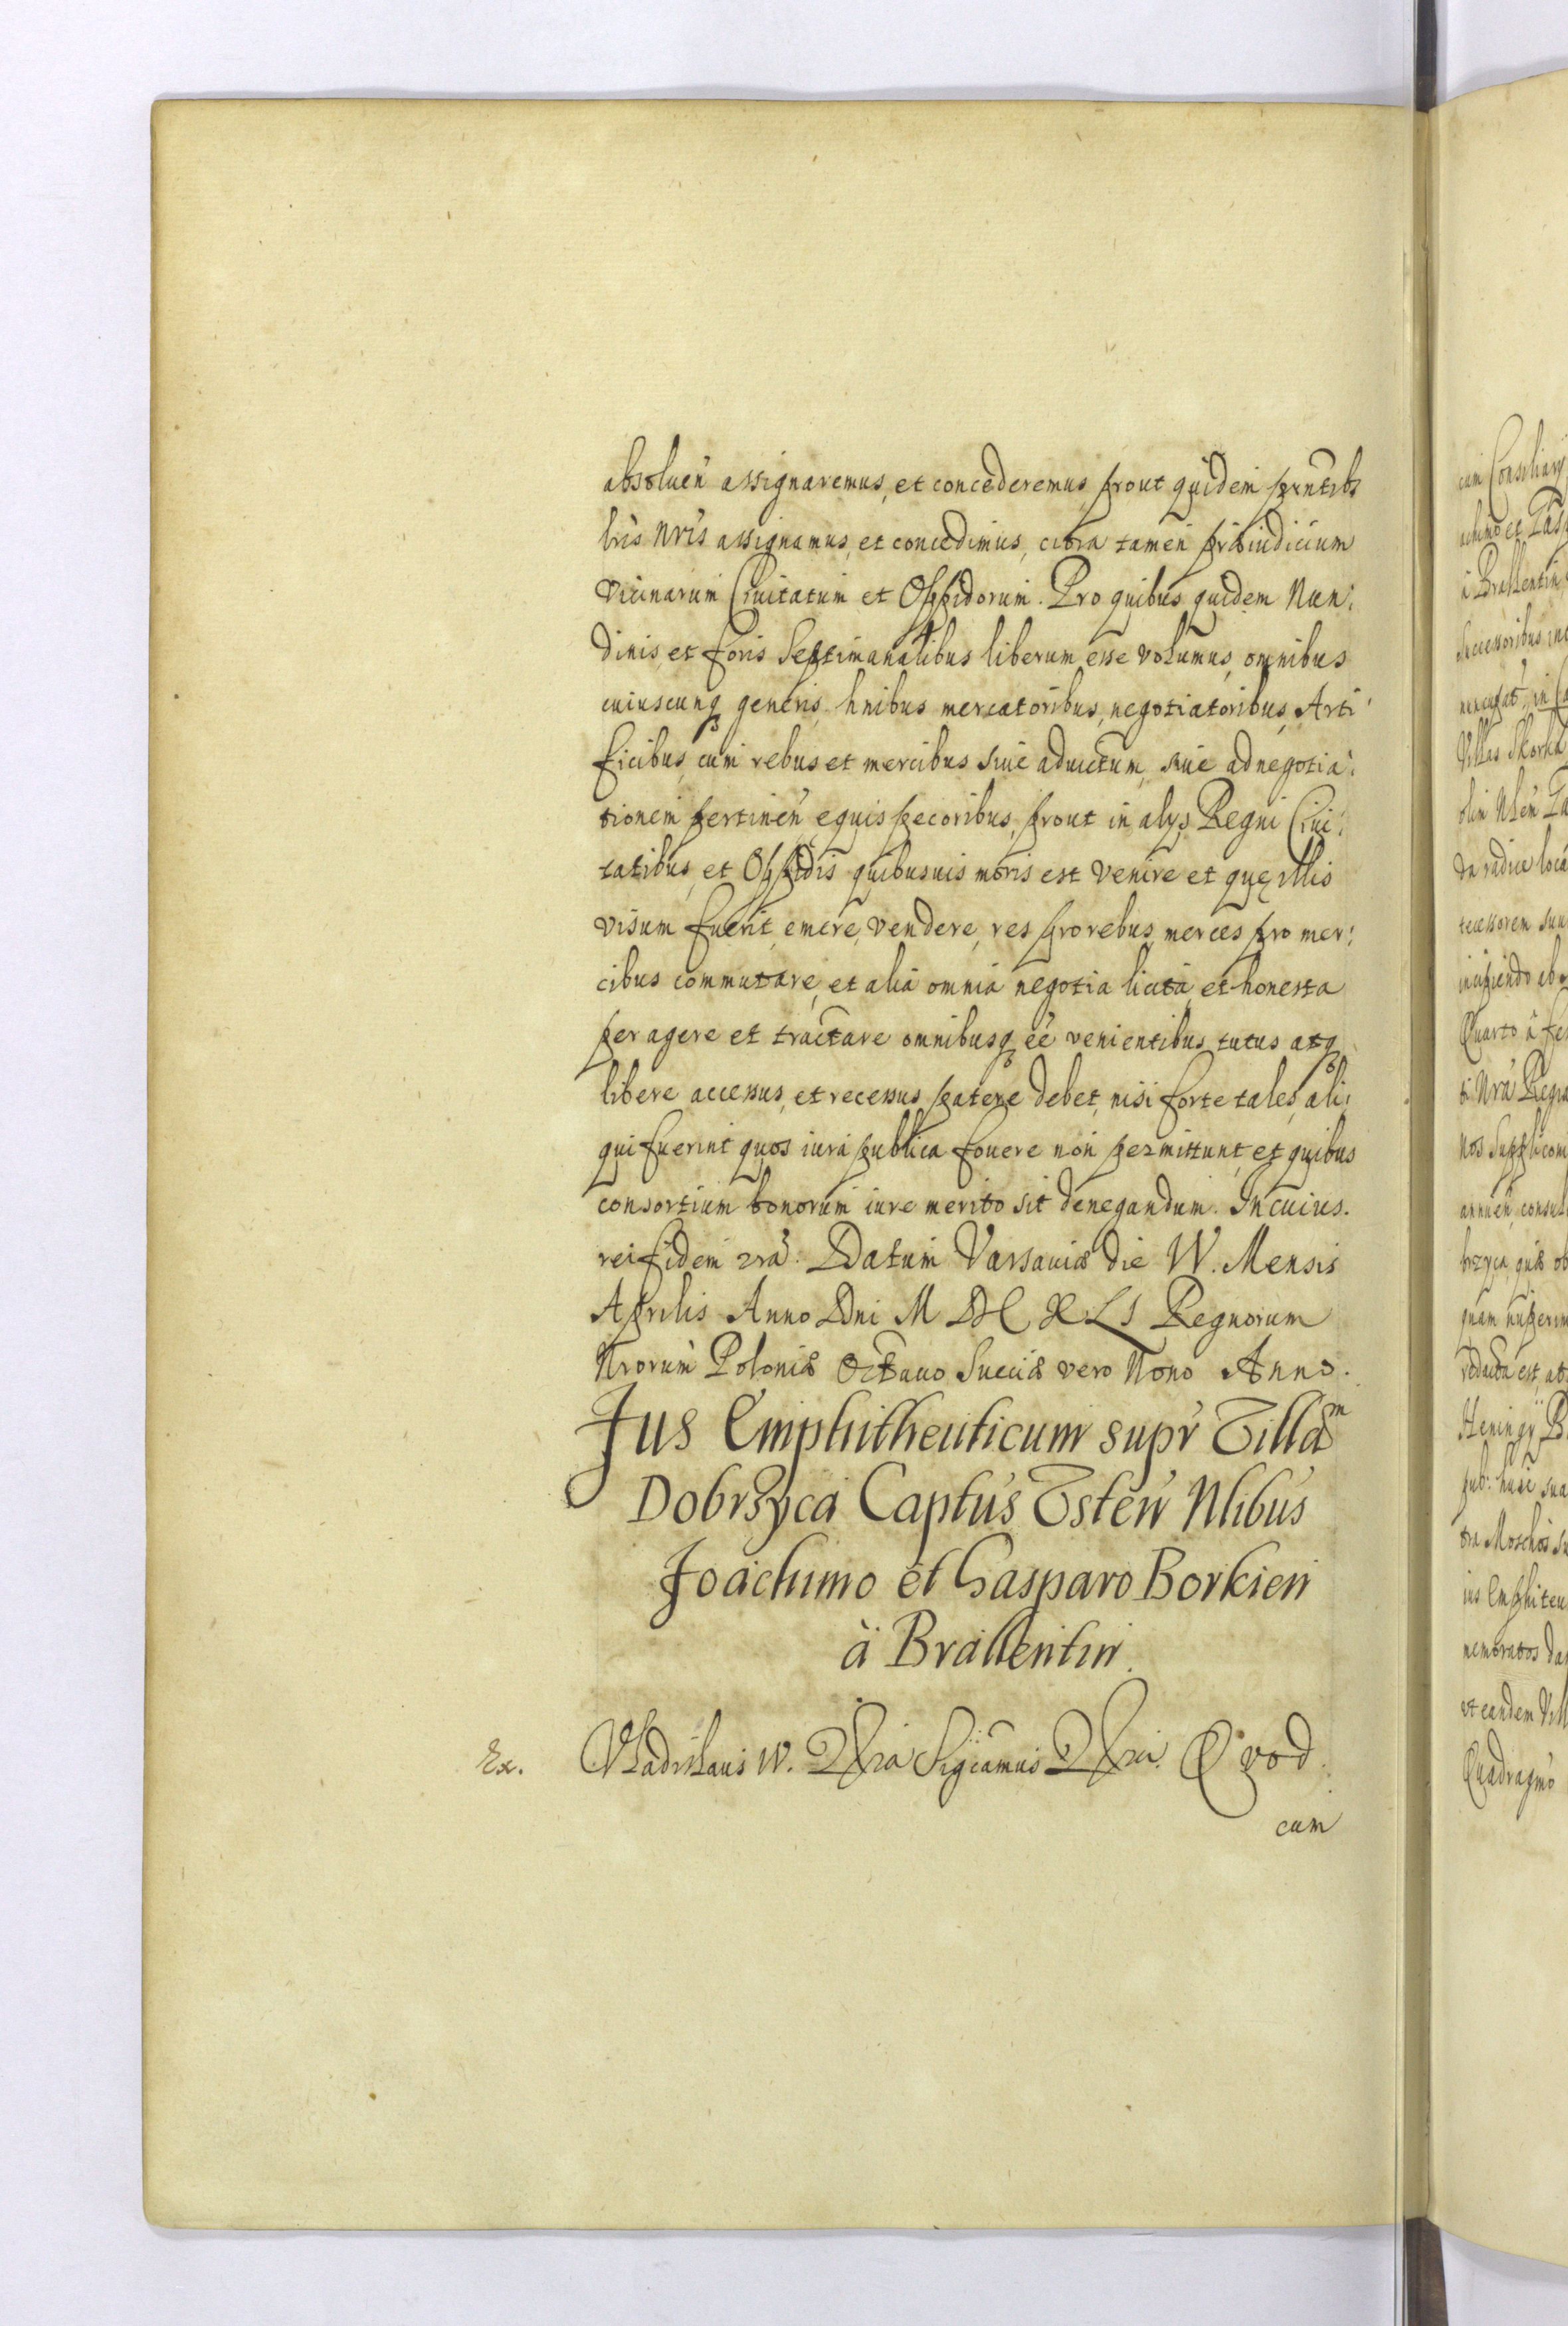 absoluen̄ assignaremus, et concederemus prout quidem pr̄ntibs
lris nris assignamus, et concedimus, citra tamen præiudicium
vicinarum Ciuitatum et Oppidorum. Pro quibus quidem Nun:
dinis, et foris Septimanalibus liberum esse volumus, omnibus
cuiuscunq generis hnibus mercatoribus, negotiatoribus, Arti:
ficibus, cum rebus et mercibus siue ad uictum, siue ad negotia:
tionem pertinen̄ equis pecoribus, prout in alys Regni Ciui:
tatibus, et Oppidis quibusuis moris est venire et quę illis
visum fuerit, emere, vendere, res pro rebus, merces pro mer:
cibus commutare, et alia omnia negotia licita, et honesta
per agere et tractare omnibusq eė venientibus tutus atq
libere accessus, et recessus patere debet, nisi forte tales, ali:
qui fuerint quos iura publica fouere non permittunt, et quibus
consortium bonorum iure merito sit denegandum. In cuius.
rei fidem 2ra. Datum Varsauiæ die IV. Mensis
Aprilis Anno Dni M DC XLI Regnorum
Nrorum Poloniæ Octauo Sueciæ vero Nono Anno.
Jus Emphitheuticum supr Villam
Dobrzyca Captus Vsten̄ Nlibus
Joachimo et Gasparo Borkien
à Brallentin.
Ex. Vladislaus IV. Sigcamus Quod
cum
cum Consiliary
achimo et Gasp
à Brallentin
Successoribus
in Ca
Villas Skorka
olim
da radice loca
tecessorem suu
incipiendo ab
Quarto à fe
ti Nra Regia
nos supplicom
annuen̄ consul
brzyca, quæ ob
quam nuperim
redacta est, at
Heningÿ B
sua
tra Moschos su
ius Emphiteu
memoratos da
vt eandem Vill
Quadragmo